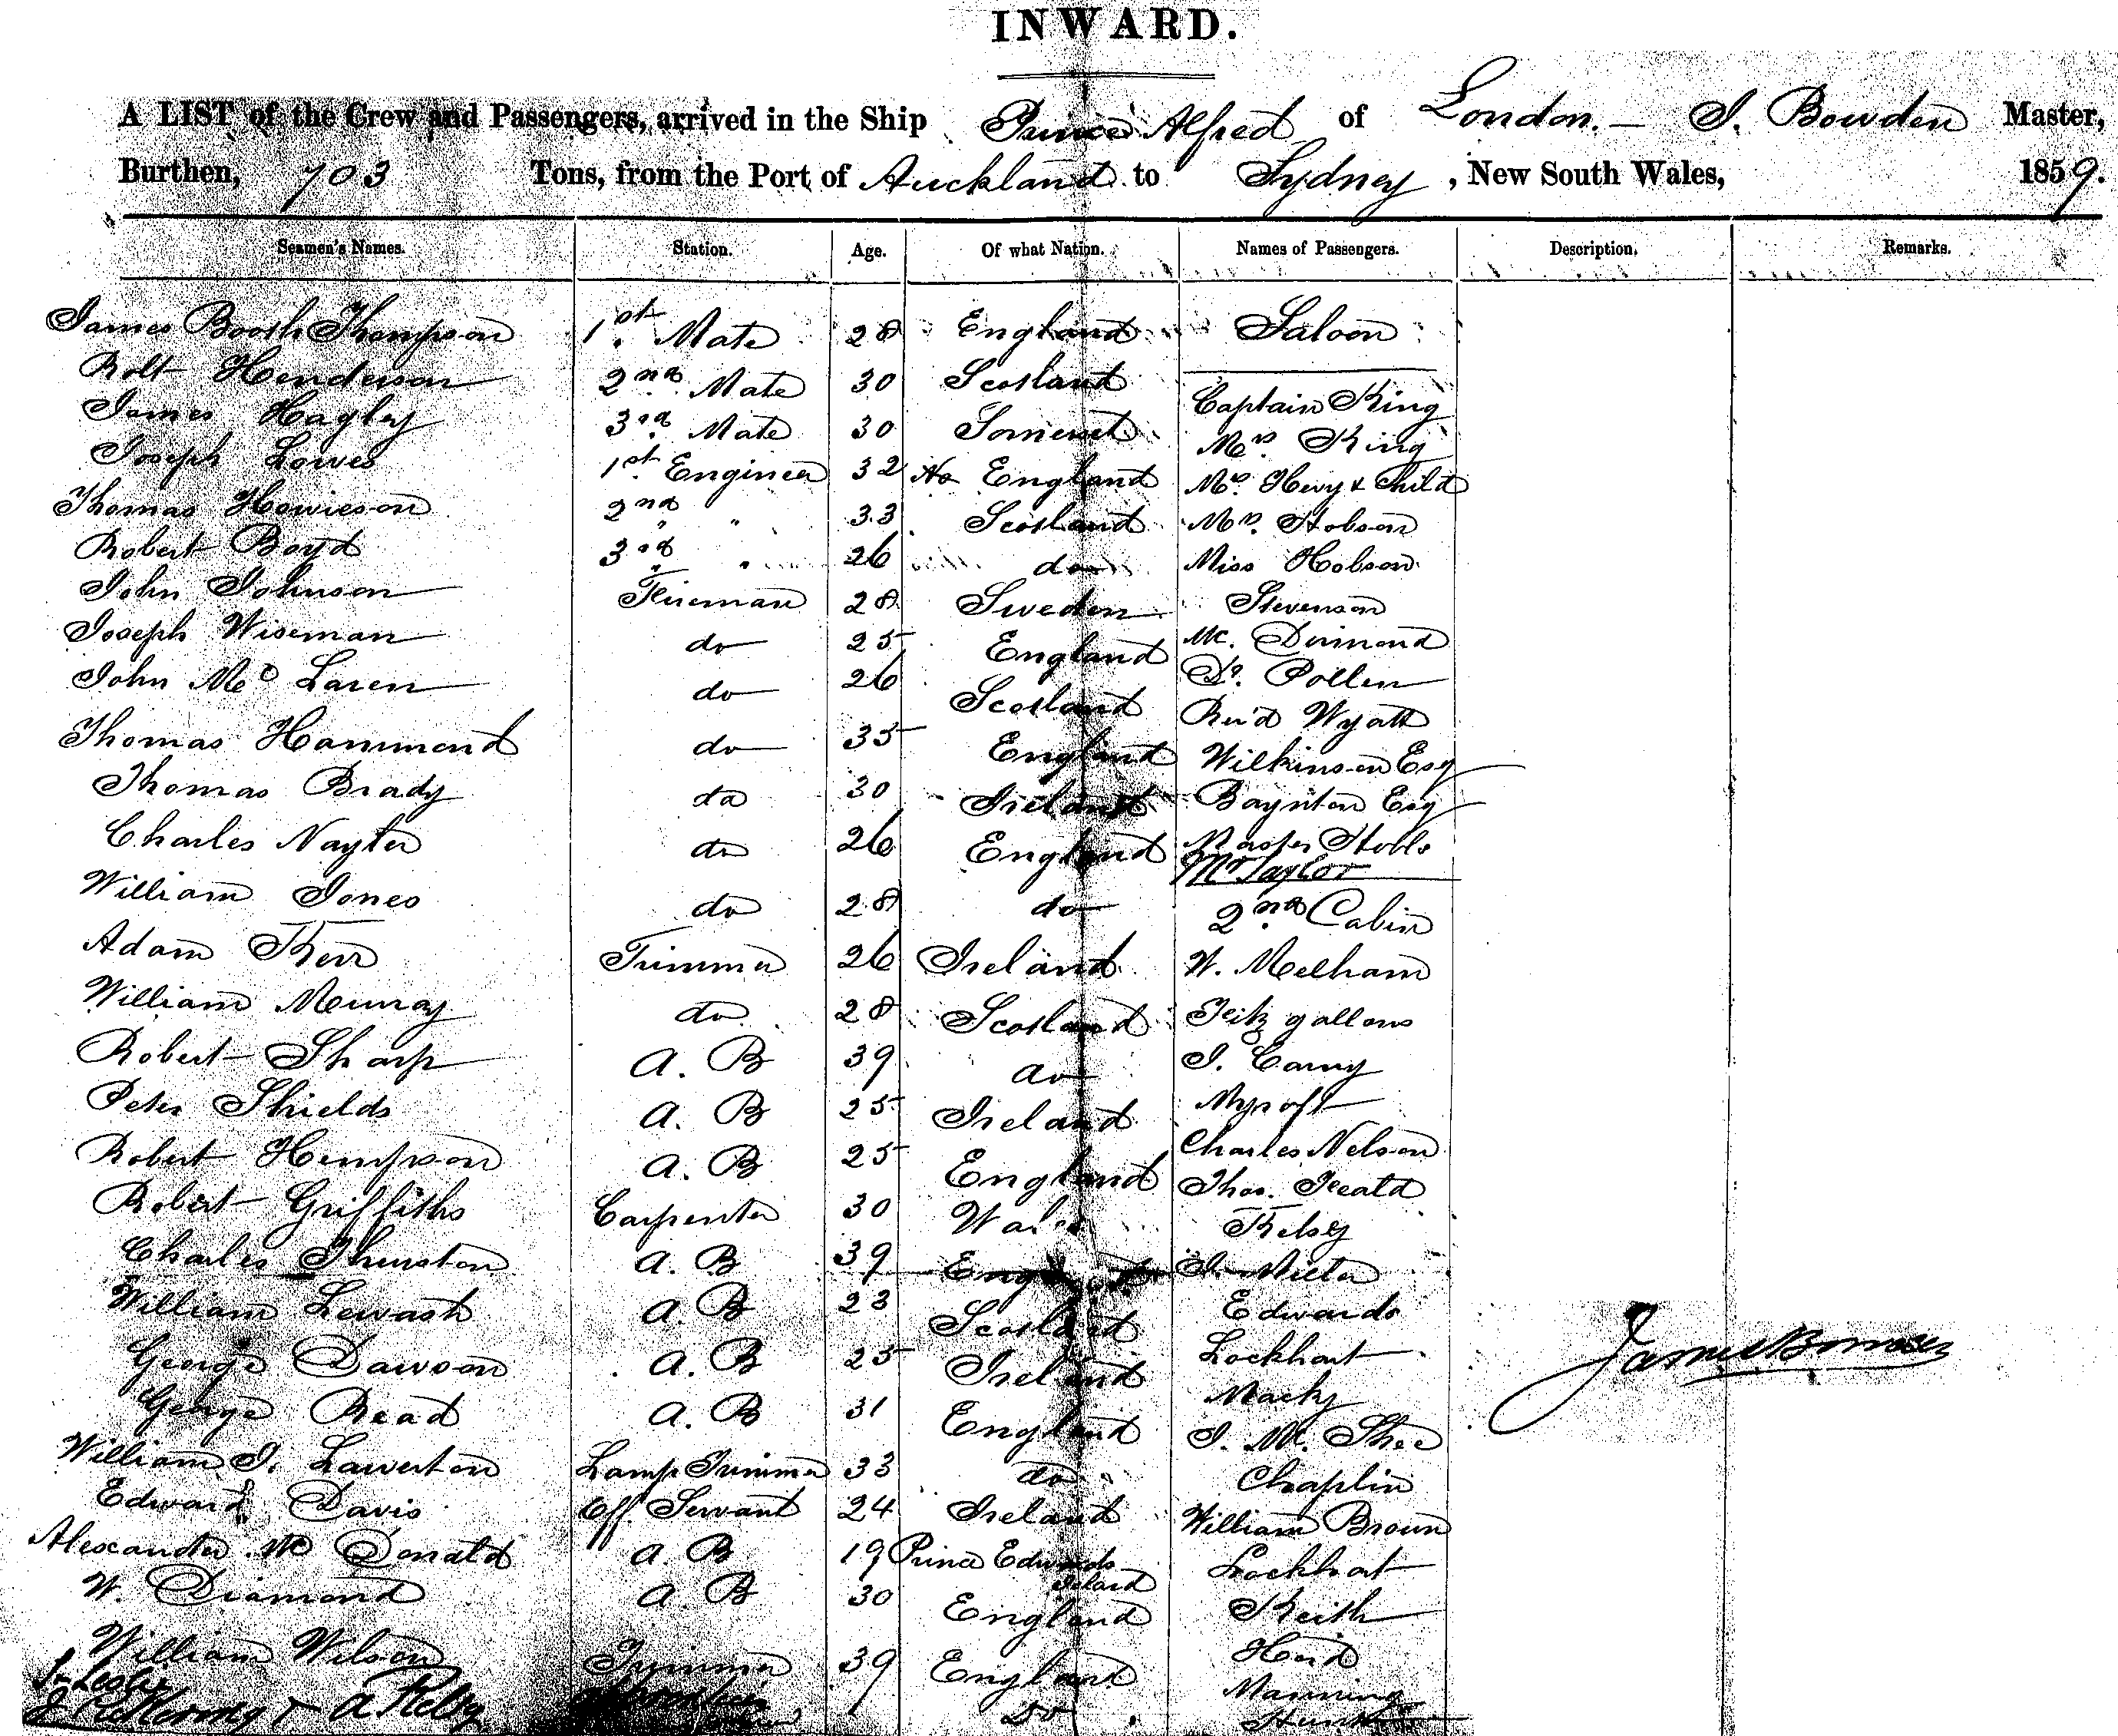 INWARD.
A LIST of the Crew and Passengers, arrived in the Ship Prince Alfred of London. — J. Bowden Master,
Burthen, 703 Tons, from the Port of Auckland to Sydney, New South Wales, 1859.
Seamen's Names. Station. Age. Of what Nation. Names of Passengers. Description. Remarks.
James Booth Thompson 1st Mate 28 England Saloon
Robt Henderson 2nd Mate 30 Scotland Captain King
James Hagley 3rd Mate 30 Somerset Mrs. King
Joseph Lowes 1st Engineer 32 England Mrs. & Child
Thomas Howieson 2nd " " 33 Scotland Mrs. Hobson
Robert Boyd 3rd " " 26 do Miss Hobson
John Johnson Fireman 28 Sweden Stevenson
Joseph Wiseman do 25 England Mc. Dermond
John Mc Laren do 26 Scotland Dr. Pollen
Thomas Hammond do 35 England Rev'd Wyatt
Thomas Brady do 30 Ireland Wilkinson Esq
Charles Nayler do 26 England Baynton Esq
William Jones do 28 do Master Hobbs
Mr Taylor
2nd Cabin
Adam Kerr Trimmer 26 Ireland W. Meelham
William Murray do 28 Scotland Fitz gallons
Robert Sharp A. B 39 do J.
Peter Shields A. B 25 Ireland
Robert Hempson A. B 25 England Charles Nelson
Robert Griffiths Carpenter 30 Wales Thos. Heald
Charles Thurston A. B 39 England Kelsey
William Lewash A. B 23 Scotland Edwards
George Dawson A. B 25 Ireland Lockhart
George Read A. B 31 England Macky
William J. Lawerton Lamp Trimmer 33 do Chaplin
Edward Davis Off. Servant 24 Ireland William Brown
Alexander Mc Donald A. B 19 Prince Edwards Island Lockhart
W. Diamond A. B 30 England Keith
William Wilson Trimmer 39 England Herd
Manning
Do
A Kelsey